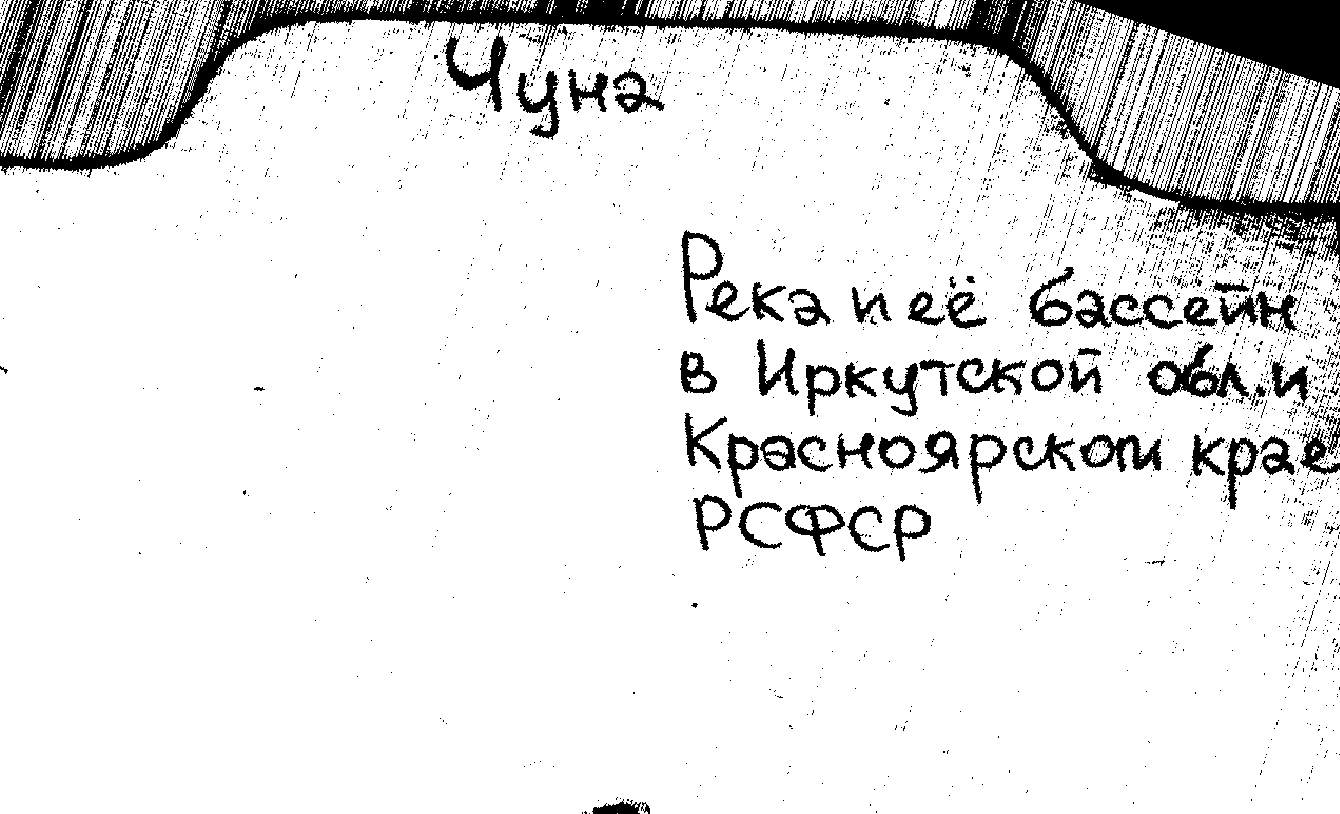 Чуна
Река и её бассейн
в Иркутской обл. и
Красноярском крае
РСФСР